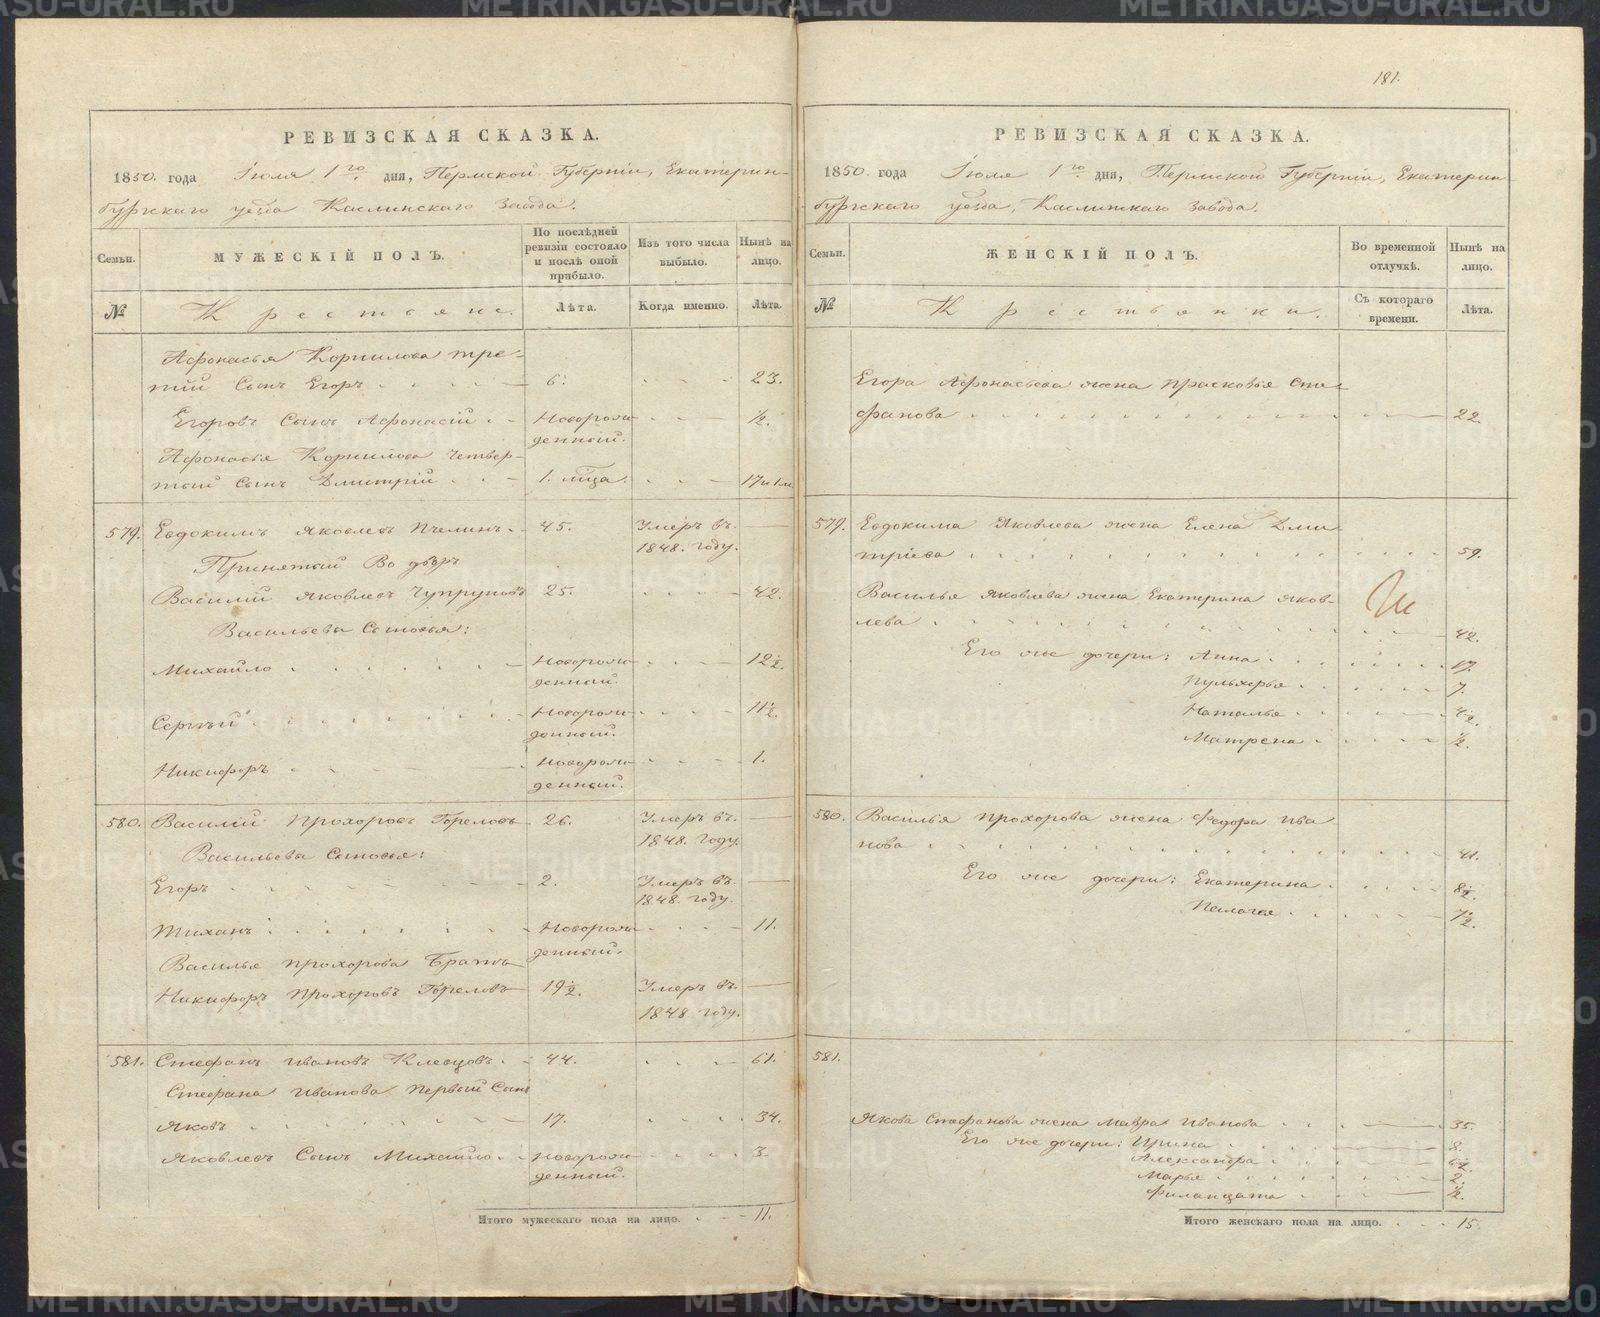 181.
РЕВИЗСКАЯ СКАЗКА.
1850. года Іюля 1го дня, Пермской Губерніи, Екатерин-
бургскаго уезда Каслинскаго Завода.
Семьи.
МУЖЕСКІЙ ПОЛЪ.
По послѣдней ревизіи состояло и послѣ оной прибыло.
Изъ того числа выбыло.
Нынѣ на лицо.
№
Крестьяне.
Лѣта.
Когда именно.
Лѣта.
Афонасья Корнилова тре-
тій Сынъ Егоръ 6. 23.
Егоровъ Сынъ Афонасій Новорож- ½.
денный.
Афонасья Корнилова Четвер-
тый Сынъ Дмитрій 1. мца. 17 и 1 м
579. Евдокимъ Яковлевъ Пчелинъ 45. Умеръ въ
1848. году.
Принятый Во дворъ
Василій Яковлевъ Чупруновъ 25. 42.
Васильевы Сыновья:
Михайло Новорож- 12½.
денный.
Сергѣй Новорож- 11½.
денный.
Никифоръ Новорож- 1.
денный.
580. Василій Прохоровъ Гореловъ 26. Умеръ въ
1848. году.
Васильевы Сыновья:
Егоръ 2. Умеръ въ
1848. году.
Тиханъ Новорож- 11.
денный.
Василья Прохорова Братъ
Никифоръ Прохоровъ Гореловъ 19½. Умеръ въ
1848. году.
581. Стефанъ Ивановъ Клевцовъ 44. 61.
Стефана Иванова Первый Сынъ
Яковъ 17. 34.
Яковлевъ Сынъ Михайло Новорож- 3.
денный.
Итого мужескаго пола на лицо. 11.
РЕВИЗСКАЯ СКАЗКА.
1850. года Іюля 1го дня, Пермской Губерніи, Екатерин-
бургскаго уезда, Каслинскаго завода.
Семьи.
ЖЕНСКІЙ ПОЛЪ.
Во временной отлучкѣ.
Нынѣ на лицо.
№
Крестьянки.
Съ котораго времени.
Лѣта.
Егора Афонасьева жена Прасковья Сте-
фанова 22.
579. Евдокима Яковлева жена Елена Дми-
тріева 59.
Василья Яковлева жена Екатерина Яков-
лева 42.
Его же дочери: Анна 17.
Пульхерья 7.
Наталья 4½.
Матрена ½.
580. Василья Прохорова жена Федора Ива
нова 41.
Его же дочери: Екатерина 8½.
Пелагея 7½.
581.
Якова Стефанова жена Мавра Иванова 35.
Его же дочери: Ирина 8.
Александра 6½.
Марья 2.
Филанцата ½.
Итого женскаго пола на лицо. 15.
METRIKI.GASO-URAL.RU